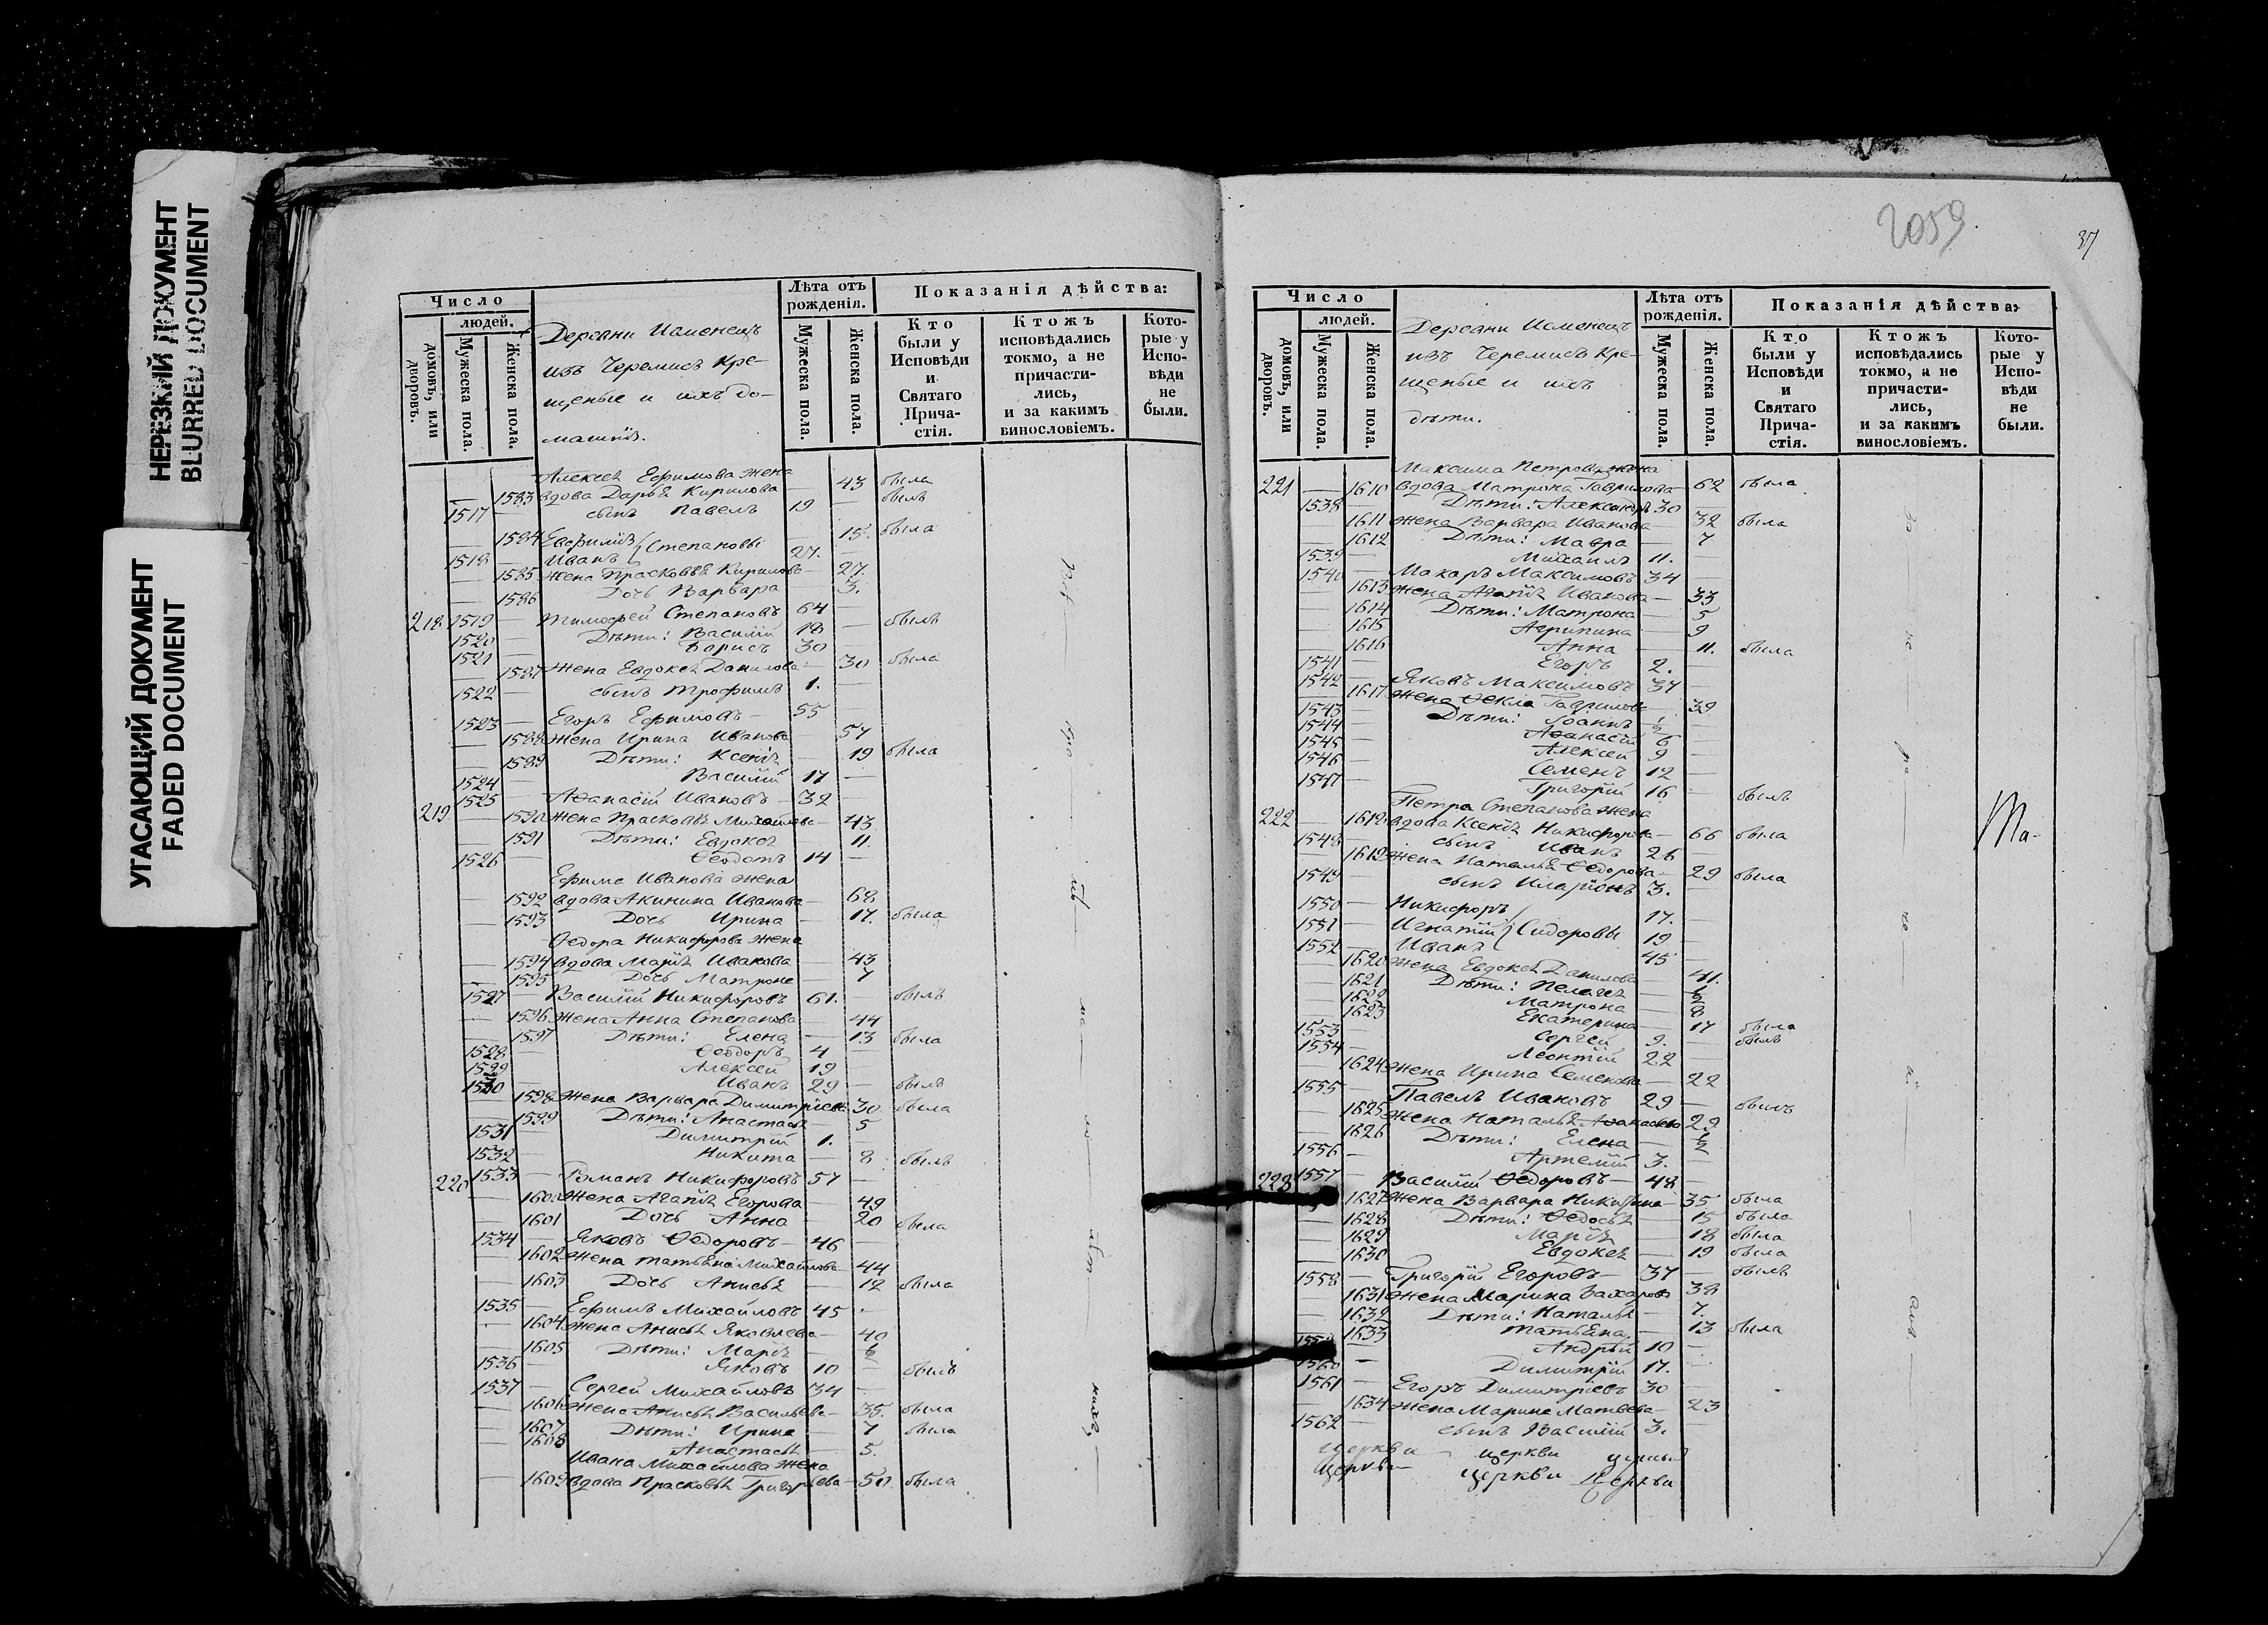 НЕРЕЗКИЙ ДОКУМЕНТ
BLURRED DOCUMENT
УГАСАЮЩИЙ ДОКУМЕНТ
FADED DOCUMENT
Число
людей.
домовъ, или дворовъ.
Мужеска пола.
Женска пола.
Деревни
изъ Черемисъ Кре-
щеные и ихъ до-
машніе.
Лѣта отъ рожденія.
Мужеска пола.
Женска пола.
Показанія дѣйства:
Кто были у Исповѣди и Святаго Прича-стія.
Ктожъ исповѣдались токмо, а не причасти-лись, и за какимъ винословіемъ.
Кото-рые у Испо-вѣди не были.
Алексея Ефимова жена
— 1583 вдова Дарья Кирилова — 43 была
1517 — сынъ Павелъ 19 — былъ
— 1584 Евфимія } Степановы — 15. была
1518 — Иванъ 27. —
— 1585 жена Прасковья Кирилова — 27.
— 1586 Дочь Варвара — 3.
218 1519 — Тимофей Степановъ 64 — былъ
1520 — Дѣти: Василій 18 —
1521 — Борисъ 30
— 1587 жена Евдокея Данилова — 30 была
1522 — сынъ Трофимъ 1. —
1523 — Егоръ Ефимовъ 55 —
— 1588 жена Ирина Иванова — 57
— 1589 Дѣти: Ксенія — 19 была
1524 Василій 17 —
219 1525 — Аѳанасій Ивановъ 32 —
— 1590 жена Прасковья Михайлова — 43
1591 Дѣти: Евдокея — 11.
1526 — Ѳеодотъ 14 —
Ефима Иванова жена
— 1592 вдова Акинина Иванова — 68
— 1593 Дочь Ирина — 17. была
Ѳедора Никифорова жена
— 1594 вдова Марія Иванова — 43
— 1595 Дочь Матрона — 7
1527 — Василій Никифоровъ 61. — былъ
— 1596 жена Анна Степанова — 44
— 1597 Дѣти: Елена — 13 была
1528 — Ѳеодоръ 4 —
1529 Алексей 19 —
1530 — Иванъ 29 — былъ
— 1598 жена Варвара Димитріева 30 была
— 1599 Дѣти: Анастасья 5
1531 — Димитрій 1. —
1532 — Никита — 8 былъ
220 1533 — Романъ Никифоровъ 57 —
— 1600 жена Агапія Егорова — 49
— 1601 Дочь Анна — 20 была
1534 — Яковъ Ѳедоровъ 46 —
— 1602 жена Татьяна Михайлова — 44
— 1603 Дочь Анисья — 12 была
1535 — Ефимъ Михайловъ 45
— 1604 жена Анисья Яковлева — 40
— 1605 Дѣти: Марія — ½
1536 — Яковъ 10 — былъ
1537 — Сергей Михайловъ 34 —
— 1606 жена Анисья Васильева — 35. была
— 1607 Дѣти: Ирина — 7 была
— 1608 Анастасья — 5.
Ивана Михайлова жена
— 1609 вдова Прасковья Григорьева — 50 была
2059
37
Число
людей.
домовъ, или дворовъ.
Мужеска пола.
Женска пола.
Деревни
изъ Черемисъ Кре-
щеные и ихъ
дѣти.
Лѣта отъ рожденія.
Мужеска пола.
Женска пола.
Показанія дѣйства:
Кто были у Исповѣди и Святаго Прича-стія.
Ктожъ исповѣдались токмо, а не причасти-лись, и за какимъ винословіемъ.
Кото-рые у Испо-вѣди не были.
Максима Петрова жена
221 — 1610 вдова Матрона Гаврилова — 62 была
1538 — Дѣти: Александръ 30 —
— 1611 жена Варвара Иванова — 32 была
— 1612 Дѣти: Мавра — 7
1539 — Михаилъ 11. —
1540 — Макаръ Максимовъ 34 —
— 1613 жена Агапія Иванова — 33
— 1614 Дѣти: Матрона — 5
— 1615 Агрипина — 9
— 1616 Анна — 11. была
1541 — Егоръ 2. —
1542 — Яковъ Максимовъ 37 —
— 1617 жена Ѳекла Гаврилова — 39
1543 — Дѣти: Іоаннъ ½ —
1544 — Аѳанасій 6 —
1545 — Алексей 9 —
1546 — Семенъ 12 —
1547 — Григорій 16 — былъ
Петра Степанова жена
222 — 1618 вдова Ксенія Никифорова — 66 была
1548 — сынъ Иванъ 26 —
— 1619 жена Наталья Ѳедорова — 29 была
1549 — сынъ Иларіонъ 3. —
1550 — Никифоръ } 17. —
1551 — Игнатій } Сидоровы 19 —
1552 — Иванъ 45 —
— 1620 жена Евдокея Данилова — 41.
— 1621 Дѣти: Пелагея — ½
— 1622 Матрона — 8
— 1623 Екатерина — 17 была
1553 — Сергей 9. — былъ
1554 — Леонтій 22 —
— 1624 жена Ирина Семенова — 22
1555 — Павелъ Ивановъ 29 — былъ
— 1625 жена Наталья Аѳанасьева 29
— 1626 Дѣти: Елена — ½
1556 — Артемій 3. —
223 1557 — Василій Ѳедоровъ 48 —
— 1627 жена Варвара Никитина — 35 была
— 1628 Дѣти: Ѳедосья — 15 была
— 1629 Марія — 18 была
— 1630 Евдокея — 19 была
1558 — Григорій Егоровъ 37 — былъ
— 1631 жена Марина Захарова 38
— 1632 Дѣти: Наталья — 7.
— 1633 Татьяна — 13 была
1559 — Андрей 10 —
1560 — Димитрій 17. —
1561 — Егоръ Димитріевъ 30 —
— 1634 жена Марина Матвеева — 23
1562 — сынъ Василій 3.
церкви церкви
церкви церкви Церкви